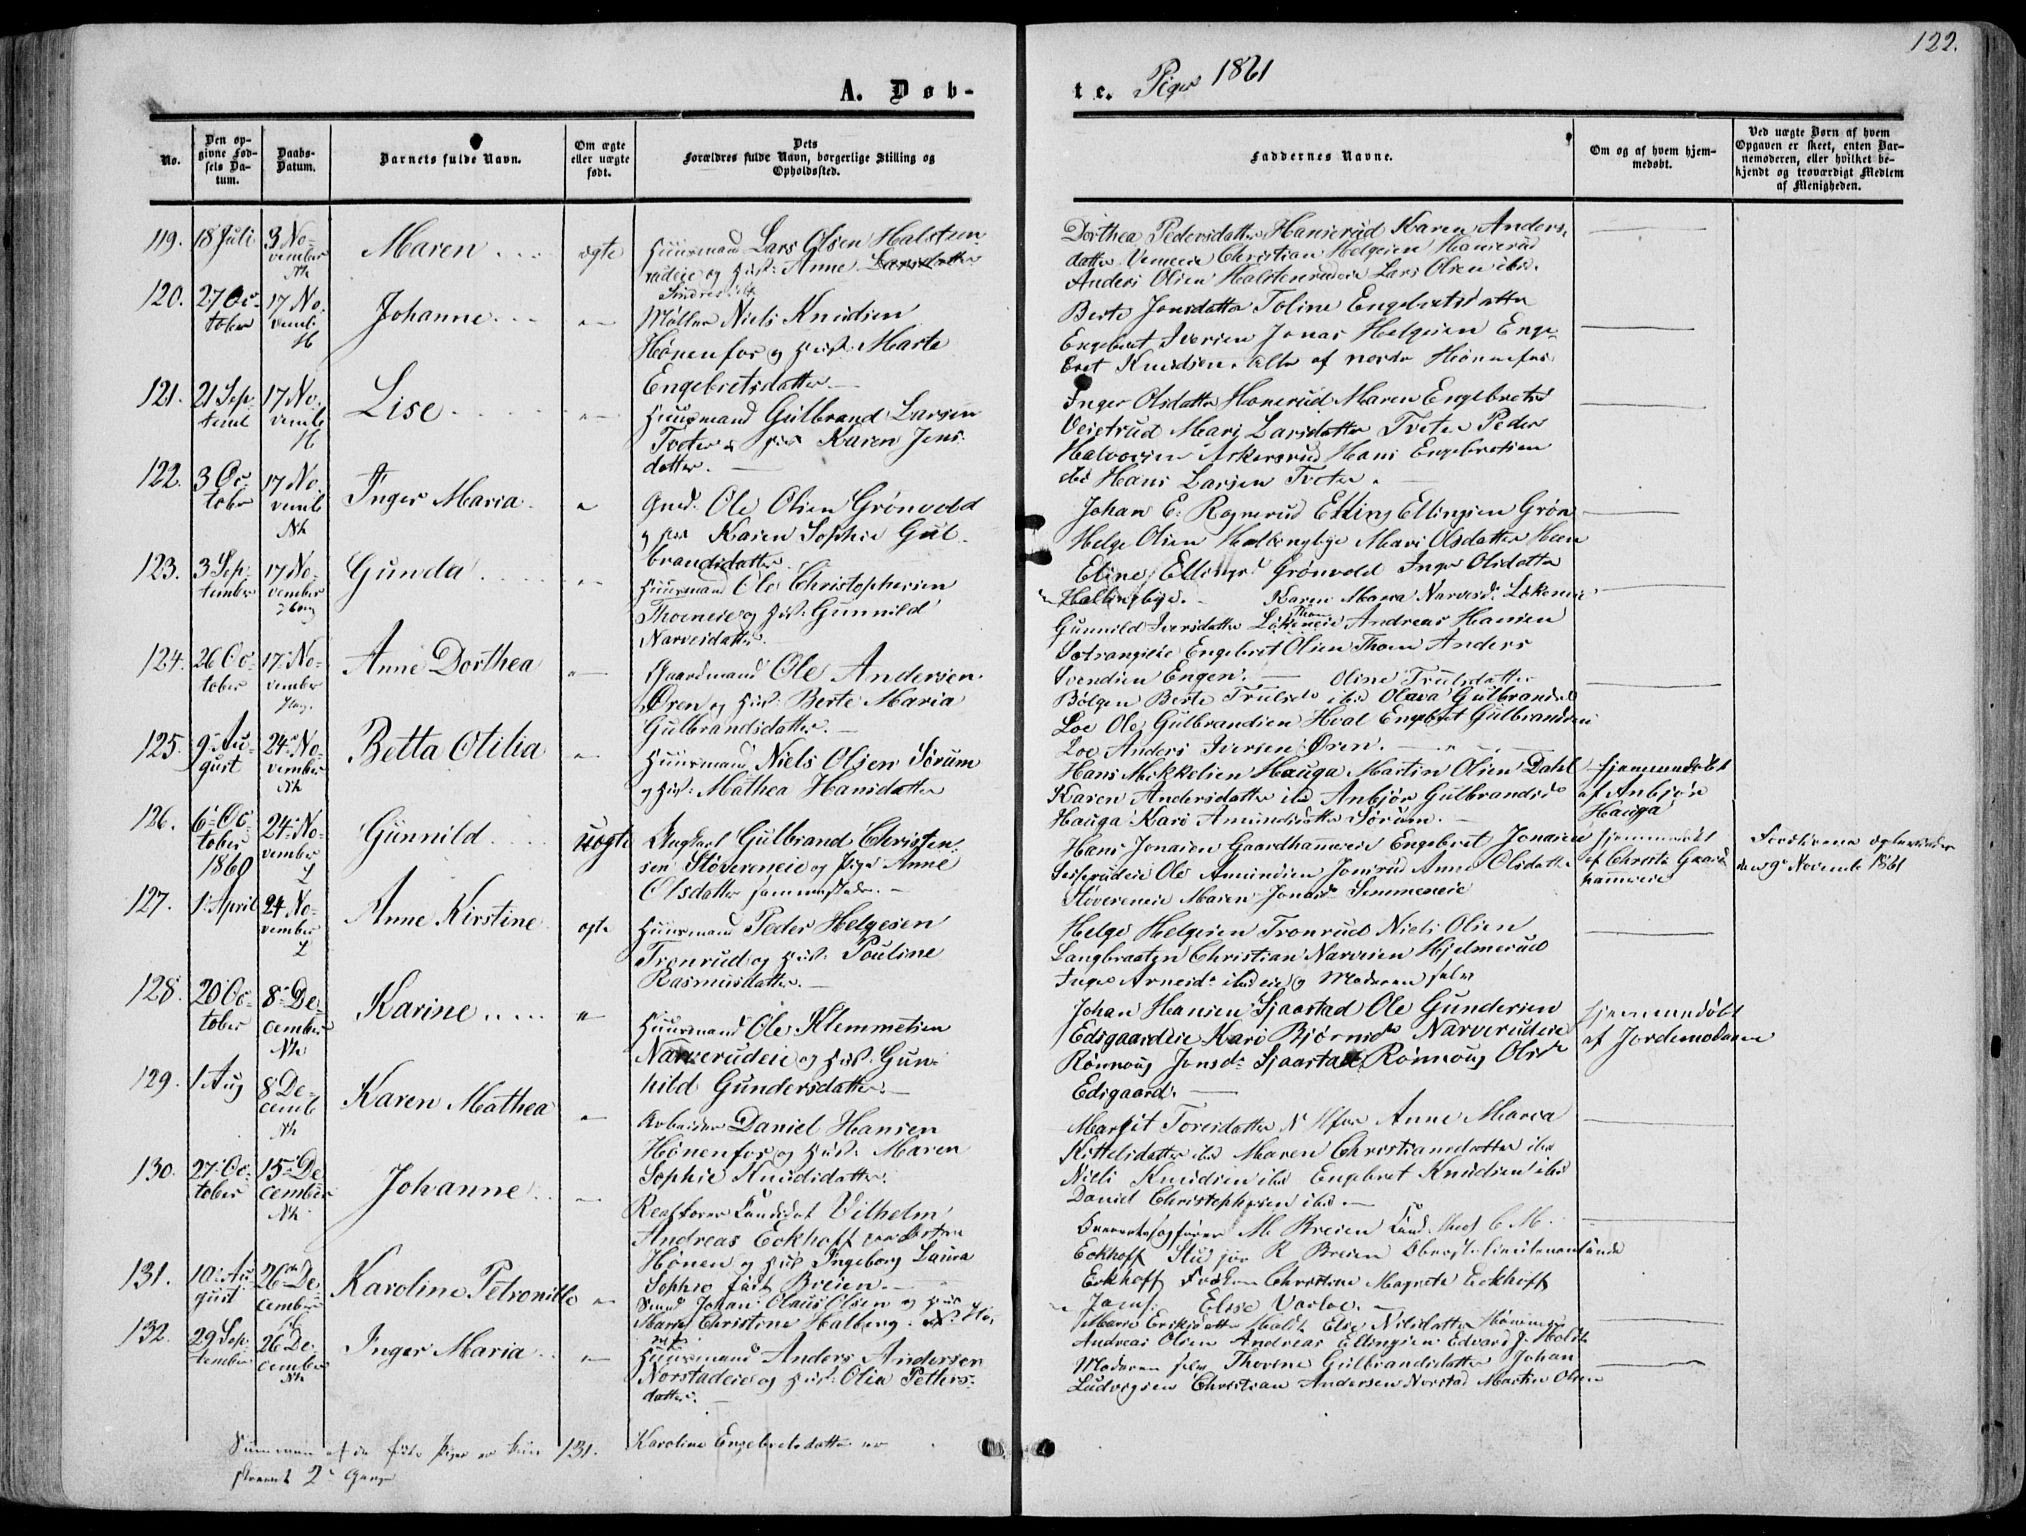 122.
A. Døb-
te. Piger 1861
No.
Den op-
givne Fød-
sels Da-
tum.
Daabs-
Datum.
Barnets fulde Navn.
Om ægte
eller uægte
født.
Dets
Forældres fulde Navn, borgerlige Stilling og
Opholdssted.
Faddernes Navne.
Om og af hvem hjem-
medøbt.
Ved uægte Børn af hvem
Opgaven er skeet, enten Bar-
nemoderen, eller hvilket be-
kjendt og troværdigt Medlem
af Menigheden.
119. 18 Juli 3 No-
vember
Nh
Maren ægte
Huusmand Lars Olsen Halsten-
rudeie og Hust: Anne Larsdatter
Dorthea Pedersdatter Hanserud Karen Anders-
datter Christian Helgesen Hanserud
Anders Olsen Halstenrudeie Lars Olsen ibid.
120. 27 Oc-
tober
17 No-
vemb
H
Johanne
Møller Niels Knudsen
Hønenfos og Hust: Marte
Engebretsdatter
Berte Jonsdatter Toline Engebretsdatter
Engebret Iversen Jonas Helgesen Enge-
bret Knudsen. alle af nordre Hønenfos
121. 21 Sep-
temb
17 No-
vemb
H
Lise
Huusmand Gulbrand Larsen
Tveter og Hust Karen Jens-
datter.
Inger Olsdatter Honerud Maren Engebretsd
Veietrud Mari Larsdatter Tveter Peder
Halvorsen Askersrud Hans Engebretsen
Hans Larsen Tveter.
122. 3 Oc-
tober
17 No-
vemb
Nh
Inger Maria
Gmd. Ole Olsen Grønvold
og Hust Karen Sophie Gul-
brandsdatter.
Johan E. Rognerud Elling Ellingsen Grøn-
Helge Olsen Hallingbye Mari Olsdatter Heen
Eline Ellingsd Grønvold Inger Olsdatter
Hallingbye.
123. 3 Sep-
tember
17 No-
vember
Gunda
Huusmand Ole Christophersen
Thoeneie og Hust: Gunnild
Narvesdatter.
Karen Maria Narvesd. Løkeneie
Gunnild Iversdatter Løkeneie Andreas Hansen
Engebret Olsen Thoen Anders
Svendsen Engen.
124. 26 Oc-
tober
17 No-
vember
Anne Dorthea
Gaardmand Ole Andersen
Øren og Hust: Berte Maria
Gulbrandsdatter.
Oline Trulsdatter
Bølgen Berte Trulsd ibid Olava Gulbrandsd
Loe Ole Gulbrandsen Hval Engebret Gulbrandsen
Loe Anders Iversen Øren.
125. 9 Au-
gust
24 No-
vember
Nh
Betta Otilia
Huusmand Niels Olsen Sørum
og Hust: Mathea Hansdatter
Hans Mikkelsen Hauga Martin Olsen Dahl
Karen Andersdatter ibd Anbjør Gulbrandsd
Hauga Kari Amundsdatter Sørum.
Hjemmedøbt
af Anbjør
Hauga
126. 6 Oc-
tober
1860
24 No-
vember
L
Gunnild uægte
Ungkarl Gulbrand Christen-
sen Støvereneie og Pige Anne
Olsdatter sammesteds.
Hans Jonasen Gaardhammeie Engebret Jonasen
Ole Amundsen Jonsrud Anne Olsdatter
Støvereneie Maren Jonasd Semmeneie
Hjemmedøbt
af Christi Gaard
hammeie
Forældrene
den 9 Novemb 1861
127. 1 April 24 No-
vember
L
Anne Kirstine ægte
Huusmand Peder Helgesen
Tronrud og Hust: Pouline
Rasmusdatter.
Helge Helgesen Tronrud Niels Olsen
Langbraaten Christian Narvesen Hjelmerud
Moderen selv
128. 20 Oc-
tober
8 De-
cember
Nh
Karine
Huusmand Ole Klemmetsen
Narverudeie og Hust: Gun-
hild Gundersdatter.
Johan Hansen Sjaastad Ole Gundersen
Edsgaardeie Kari Bjørnsd Narverudeie
Rønnoug Jonsd Sjaastad, Rønnoug Olsd
Edsgaard.
Hjemmedøbt
af Jordemoderen
129. 1 Aug 8 De-
cemb
Nh
Karen Mathea
Arbeider Daniel Hansen
Hønenfos og Hust: Maren
Sophie Knudsdatter.
Margit Toresdatter Anne Maria
Kittelsdatter ibid Maren Christiansdatter ibid
Niels Knudsen ibid Engebret Knudsen ibd
Daniel Christophersen ibid.
130. 27 Oc-
tober
15 De-
cember
Nh
Johanne
Candidat Vilhelm
Andreas Eckhoff
Hønen og Hust Ingeborg Laura
Sophie født Breien.
Overretssagfører M. Breien Cand. theol C. M.
Eckhoff Stud jur R Breien Oberstlieutenantinde
Eckhoff Frøken Christine Magrete Eckhoff
Elise Varloe.
131. 10 Au-
gust
26 De-
cember
Karoline Petronille
Smed Johan Olaus Olsen og Hust
Maren Christine Halberg.
Marie Eriksdatter Moldt Else Nilsdatter
Andreas Olsen Andreas Ellingsen Edvard J. Moldt
132. 29 Sep-
tember
26 De-
cember
Nh
Inger Maria
Huusmand Anders Andersen
Norstadeie og Hust: Olia Petters-
datter.
Moderen selv Thorine Gulbrandsdatter Johan
Ludvigsen Christian Andersen Norstad Martin Olsen
Summen af de fødte Piger er kun 131. Karoline Engebretsdatter er
skrevet 2 Gange